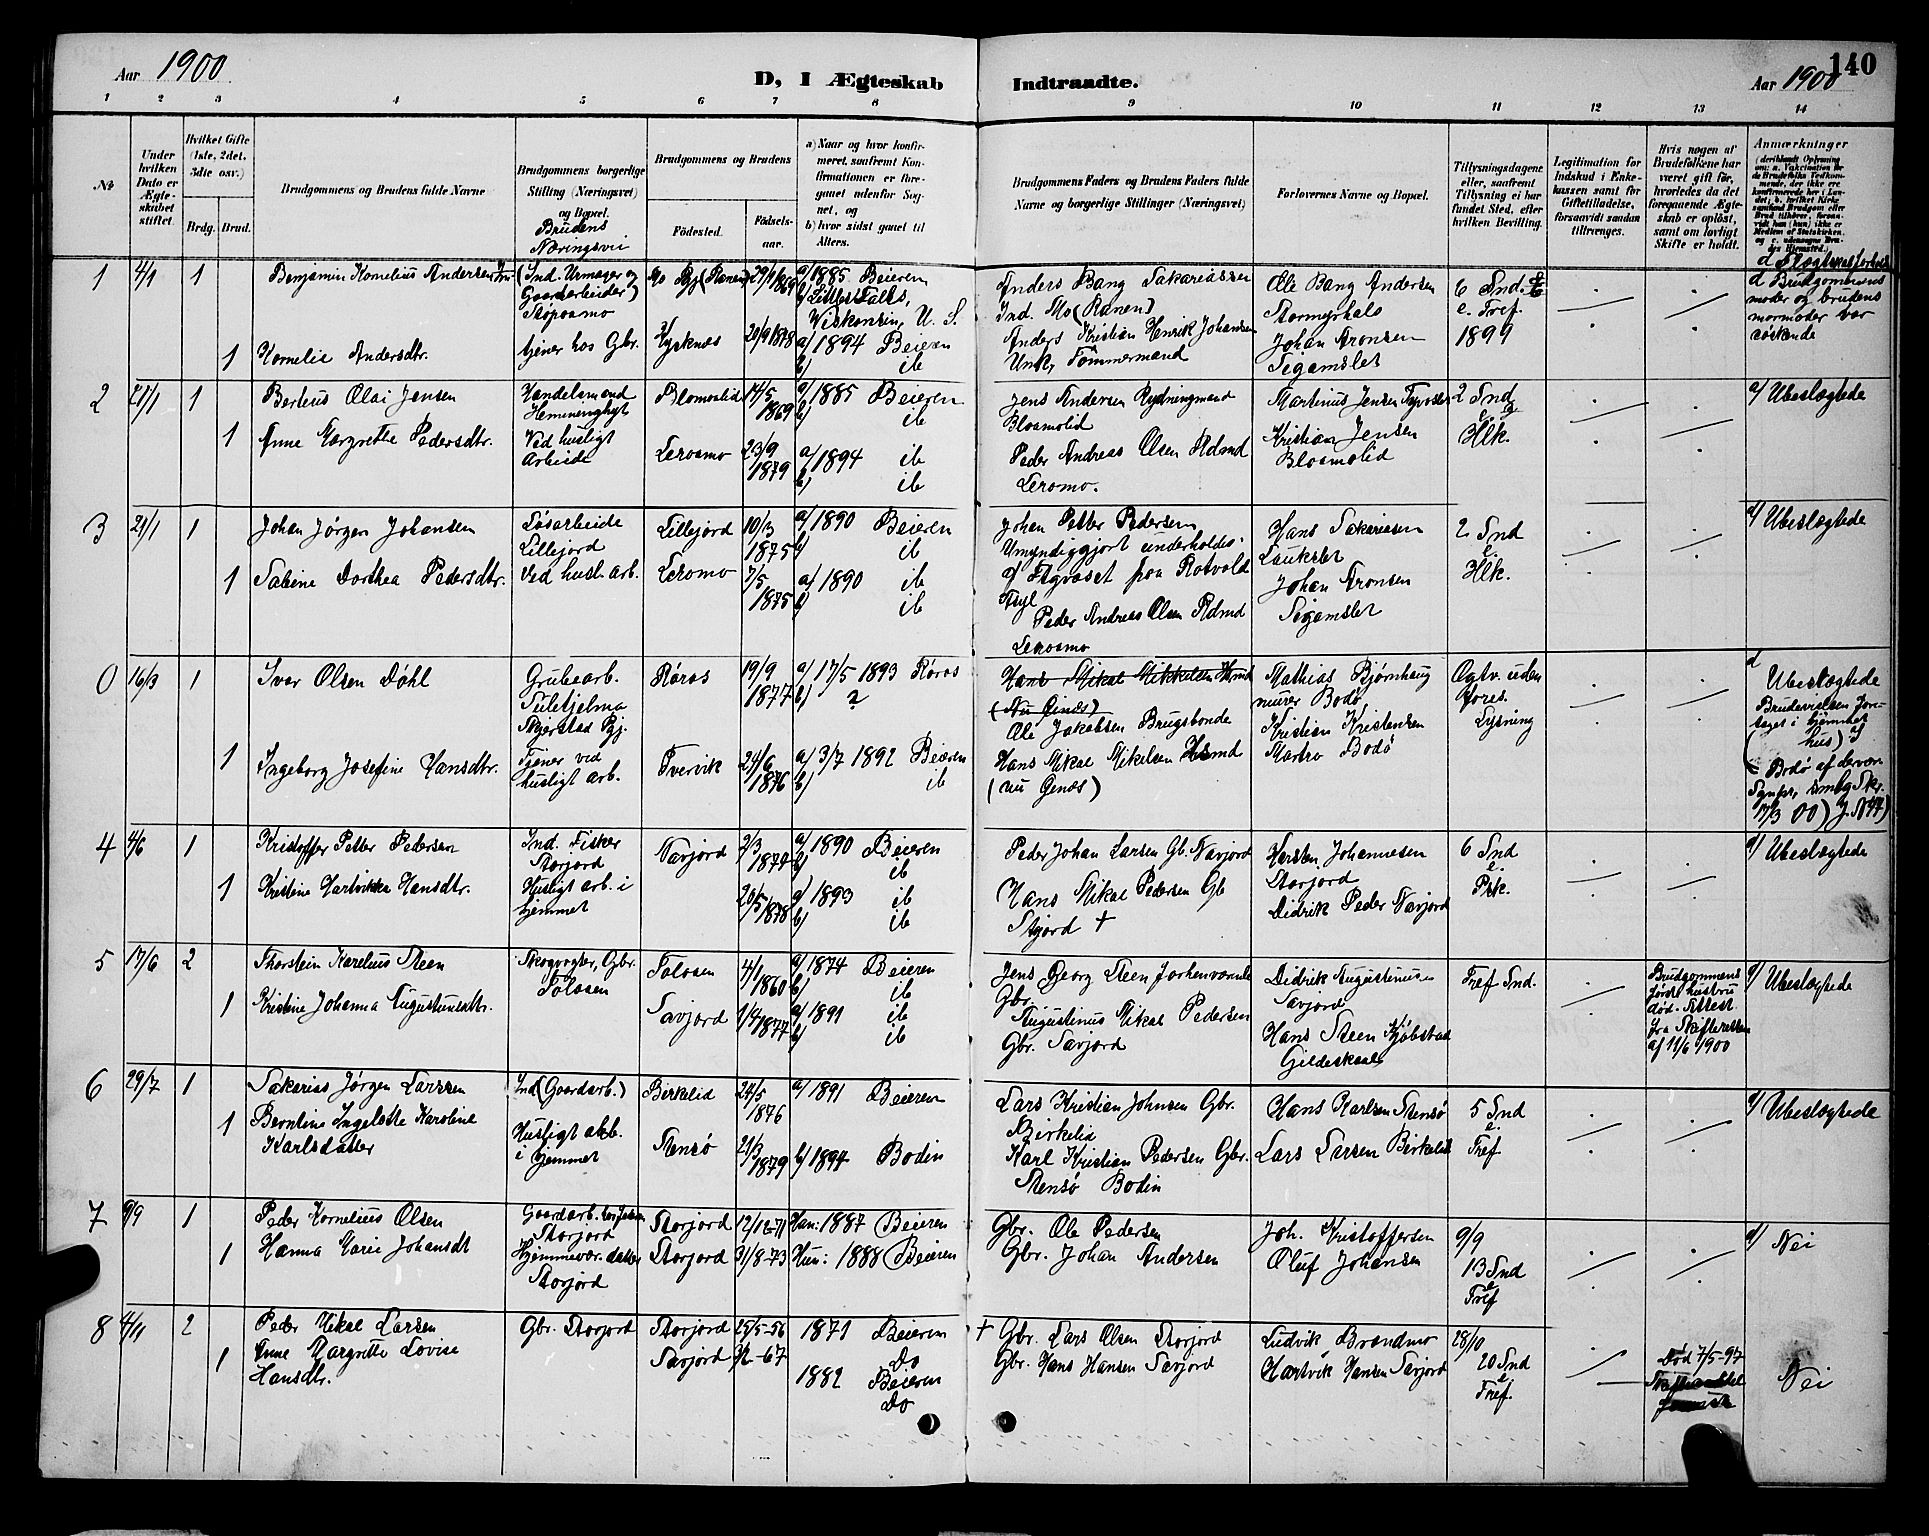 Aar 1900. D, I Ægteskab Indtraadte. Aar 1900 140
1 2 3 4 5 6 7 8 9 10 11 12 13 14
№
Under hvilken Dato er Ægteskabet stiftet.
Hvilket Gifte (1ste, 2det, 3die osv.)
Brdg. Brud.
Brudgommens og Brudens fulde Navne
Brudgommens borgerlige Stilling (Næringsvei) og Bopæl.
Brudens Næringsvei
Brudgommens og Brudens
Fødested. Fødselsaar.
a) Naar og hvor konfirmeret, saafremt Konfirmationen er foregaaet udenfor Sognet, og
b) hvor sidst gaaet til Alters.
Brudgommens Faders og Brudens Faders fulde Navne og borgerlige Stillinger (Næringsvei)
Forlovernes Navne og Bopæl.
Tillysningsdagene eller, saafremt Tillysning ei har fundet Sted, efter hvilken Bevilling.
Legitimation for Indskud i Enkekassen samt for Giftetilladelse, forsaavidt saadan tiltrænges.
Hvis nogen af Brudefolkene har været gift før, hvorledes da det foregaaende Ægteskab er opløst, samt om lovligt Skifte er holdt.
Anmærkninger
1 4/1 1 Benjamin Kornelius Andersen
Ind.
Gaardarbeider)
Mo Pgj (Ranen) 29/1 1869
a) 1885 Beieren
b) Little Falls,
Wiskonsin, U. S.
Anders Bang Sakariassen
Ind. Mo (Ranen)
Ole Bang Andersen
Stormyrhals
6 Snd.
e. Tref.
1899
d Brudgommens
moder og brudens
mormoder var
søskende
1 Kornelia Andersdtr.
tjener hos Gbr. Kysknæs 20/9 1878
a) 1894 Beieren
b) ib
Anders Kristian Henrik Johansen
Tømmermand
Johan Aronsen
Segamslet
2 21/1 1 Berteus Olai Jensen
Handelsmand
Blomolid 14/5 1869
a) 1885 Beieren
b) ib
Jens Andersen Rydningmand
Bloamolid
Martinus Jensen
2 Snd
e.
Hlk.
a) Ubeslægtede
1 Anne Margrethe Pedersdtr.
Ved husligt
Arbeide
Leroamo 23/9 1879
a) 1894 ib
b) ib
Peder Andreas Olsen
Leromo.
Kristian Jensen
Bloamolid
3 21/1 1 Johan Jørgen Johansen
Løsarbeide
Lillejord
Lillejord 10/3 1875
a) 1890 Beieren
b) ib
Johan Petter Pedersen
Umyndiggjort underholdes
af Fgvæset paa Rotvold
Asyl
Hans Sakariasen
Laukslet
2 Snd
e.
Hlk.
a) Ubeslægtede
1 Sabine Dorthea Pedersdtr.
Ved husl. arb. Leromo 7/5 1875
a) 1890 ib
b) ib
Peder Andreas Olsen
Leroamo
Johan Aronsen
Segamslet
0 16/3 1 Ivar Olsen Døhl
Grubearb.
Sulitjelma
Skjerstad Pgj.
Røros 19/9 1877
a) 17/5 1893 Røros
b) ?
Hans Mikal Mikkelsen Hmd
(Nu Ginæs)
Ole Jakobsen Brugsbonde
Mathias Bjørnhaug
murer Bodø
Ogtv. uden
fores.
Lysning
d
Ubeslægtede
Brudevielsen foretaget i hjemmet
1 Ingeborg Josefine Hansdtr.
Tjener ved
husligt arb.
Tvervik 24/6 1876
a) 3/7 1892 Beieren
b) ib
Hans Mikal Mikelsen Hsmd
(nu Ginæs)
Kristian Kristensen
Bodø
17/3 00)
4 4/6 1 Kristoffer Petter Pedersen
Ind. Fisker
Storjord
Navjord 2/3 1874
a) 1890 Beieren
b) ib
Peder Johan Larsen Gb. Navjord
Karsten Johannesen
Storjord
6 Snd
e.
Prk.
a) Ubeslægtede
1 Kristine Hartvikka Hansdtr.
Husligt arb. i
hjemmet
20/5 1878
a) 1893 ib
b) ib
Hans Mikal Pedersen Gb
Stjord †
Didrik Peder Navjord
5 17/6 2 Thorstein Karelius Steen
Skogvogter, Gbr.
Solosen
Solosen 4/1 1860
a) 1874 Beieren
b) ib
Jens Georg Steen
Gbr.
Didrik Augustinusen
Savjord
Tref Snd.
Brudgommens
første hustru
død. Attest
fra Skifteretten
af 11/6 1900
a) Ubeslægtede
1 Kristine Johanna Augustinusdtr.
Savjord 1/4 1877
a) 1891 ib
b) ib
Augustinus Mikal Pedersen
Gbr. Savjord
Hans Steen Kjøbstad
Gildeskaal
6 29/7 1 Sakarias Jørgen Larssen
Ind (Gaardarb.) Birkelid 24/5 1876
a) 1891 Beieren
Lars Kristian Johnsen Gbr.
Birkelid
Hans Karlsen Stensø
5 Snd
e.
Tref
a) Ubeslægtede
1 Berntine Ingelette Karoline
Karlsdatter
Husligt arb.
i hjemmet
Stensø 21/3 1879
b) 1894 Bodin
Karl Kristian Pedersen Gbr.
Stensø Bodin
Lars Larsen Birkelid
7 9/9 1 Peder Kornelius Olsen
Gaardarb.
Storjord
Storjord 12/12-71
Han: 1887 Beieren
Gbr. Ole Pedersen
Joh. Kristoffersen
9/9
13 Snd
e
Tref
a) Nei
1 Hanna Marie Johansdt
Hjemmevær. datter
Storjord
Storjord 31/8-73
Hun: 1888 Beieren
Gbr. Johan Andersen
Oluf Johansen
8 4/11 2 Peder Mikal Larsen
Gbr. Storjord Storjord 25/5-56
1871 Beieren
Do
† Gbr. Lars Olsen Storjord
Ludvik Brandmo
28/10
20 Snd
e
Tref.
Død 7/5-97
Nei
1 Anne Margrethe Lovise
Hansdtr.
Savjord 3/2-67
1882 Beieren
Do
Gbr. Hans Hansen Savjord
Hartvik Hansen Savjord